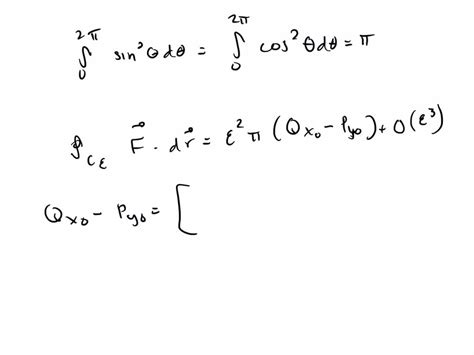 ∫₀^{2π} sin² θ dθ = ∫₀^{2π} cos² θ dθ = π
∮_{C_ε} F⃗ · dr⃗ = ε² π (Q_{x_0} − P_{y_0}) + O(ε³)
Q_{x_0} − P_{y_0} = [